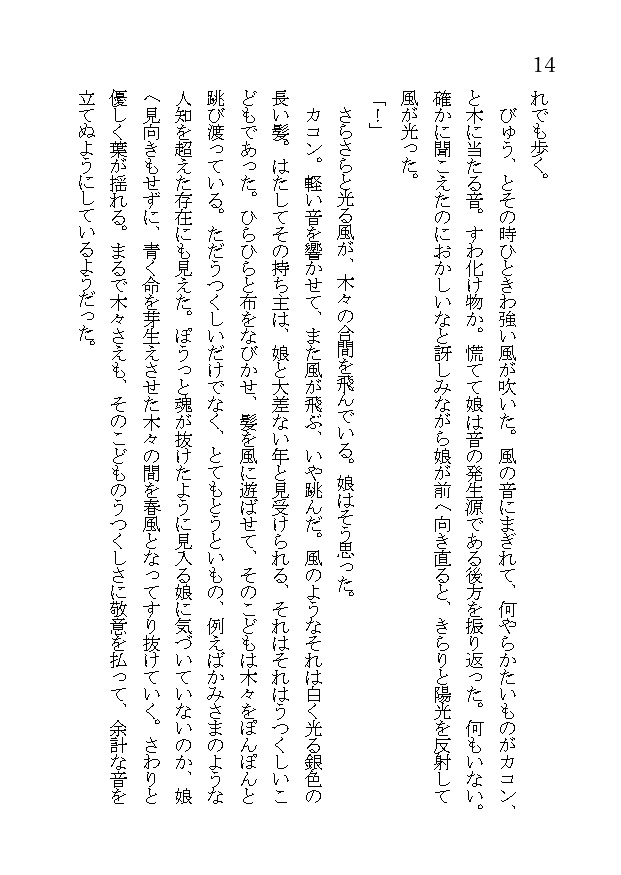 14
れでも歩く。
びゅう、とその時ひときわ強い風が吹いた。風の音にまぎれて、何やらかたいものがカコン、
と木に当たる音。すわ化け物か。慌てて娘は音の発生源である後方を振り返った。何もいない。
確かに聞こえたのにおかしいなと訝しみながら娘が前へ向き直ると、きらりと陽光を反射して
風が光った。
「！」
さらさらと光る風が、木々の合間を飛んでいる。娘はそう思った。
カコン。軽い音を響かせて、また風が飛ぶ、いや跳んだ。風のようなそれは白く光る銀色の
長い髪。はたしてその持ち主は、娘と大差ない年と見受けられる、それはそれはうつくしいこ
どもであった。ひらひらと布をなびかせ、髪を風に遊ばせて、そのこどもは木々をぽんぽんと
跳び渡っている。ただうつくしいだけでなく、とてもとうといもの、例えばかみさまのような
人知を超えた存在にも見えた。ぽうっと魂が抜けたように見入る娘に気づいていないのか、娘
へ見向きもせずに、青く命を芽生えさせた木々の間を春風となってすり抜けていく。さわりと
優しく葉が揺れる。まるで木々さえも、そのこどものうつくしさに敬意を払って、余計な音を
立てぬようにしているようだった。